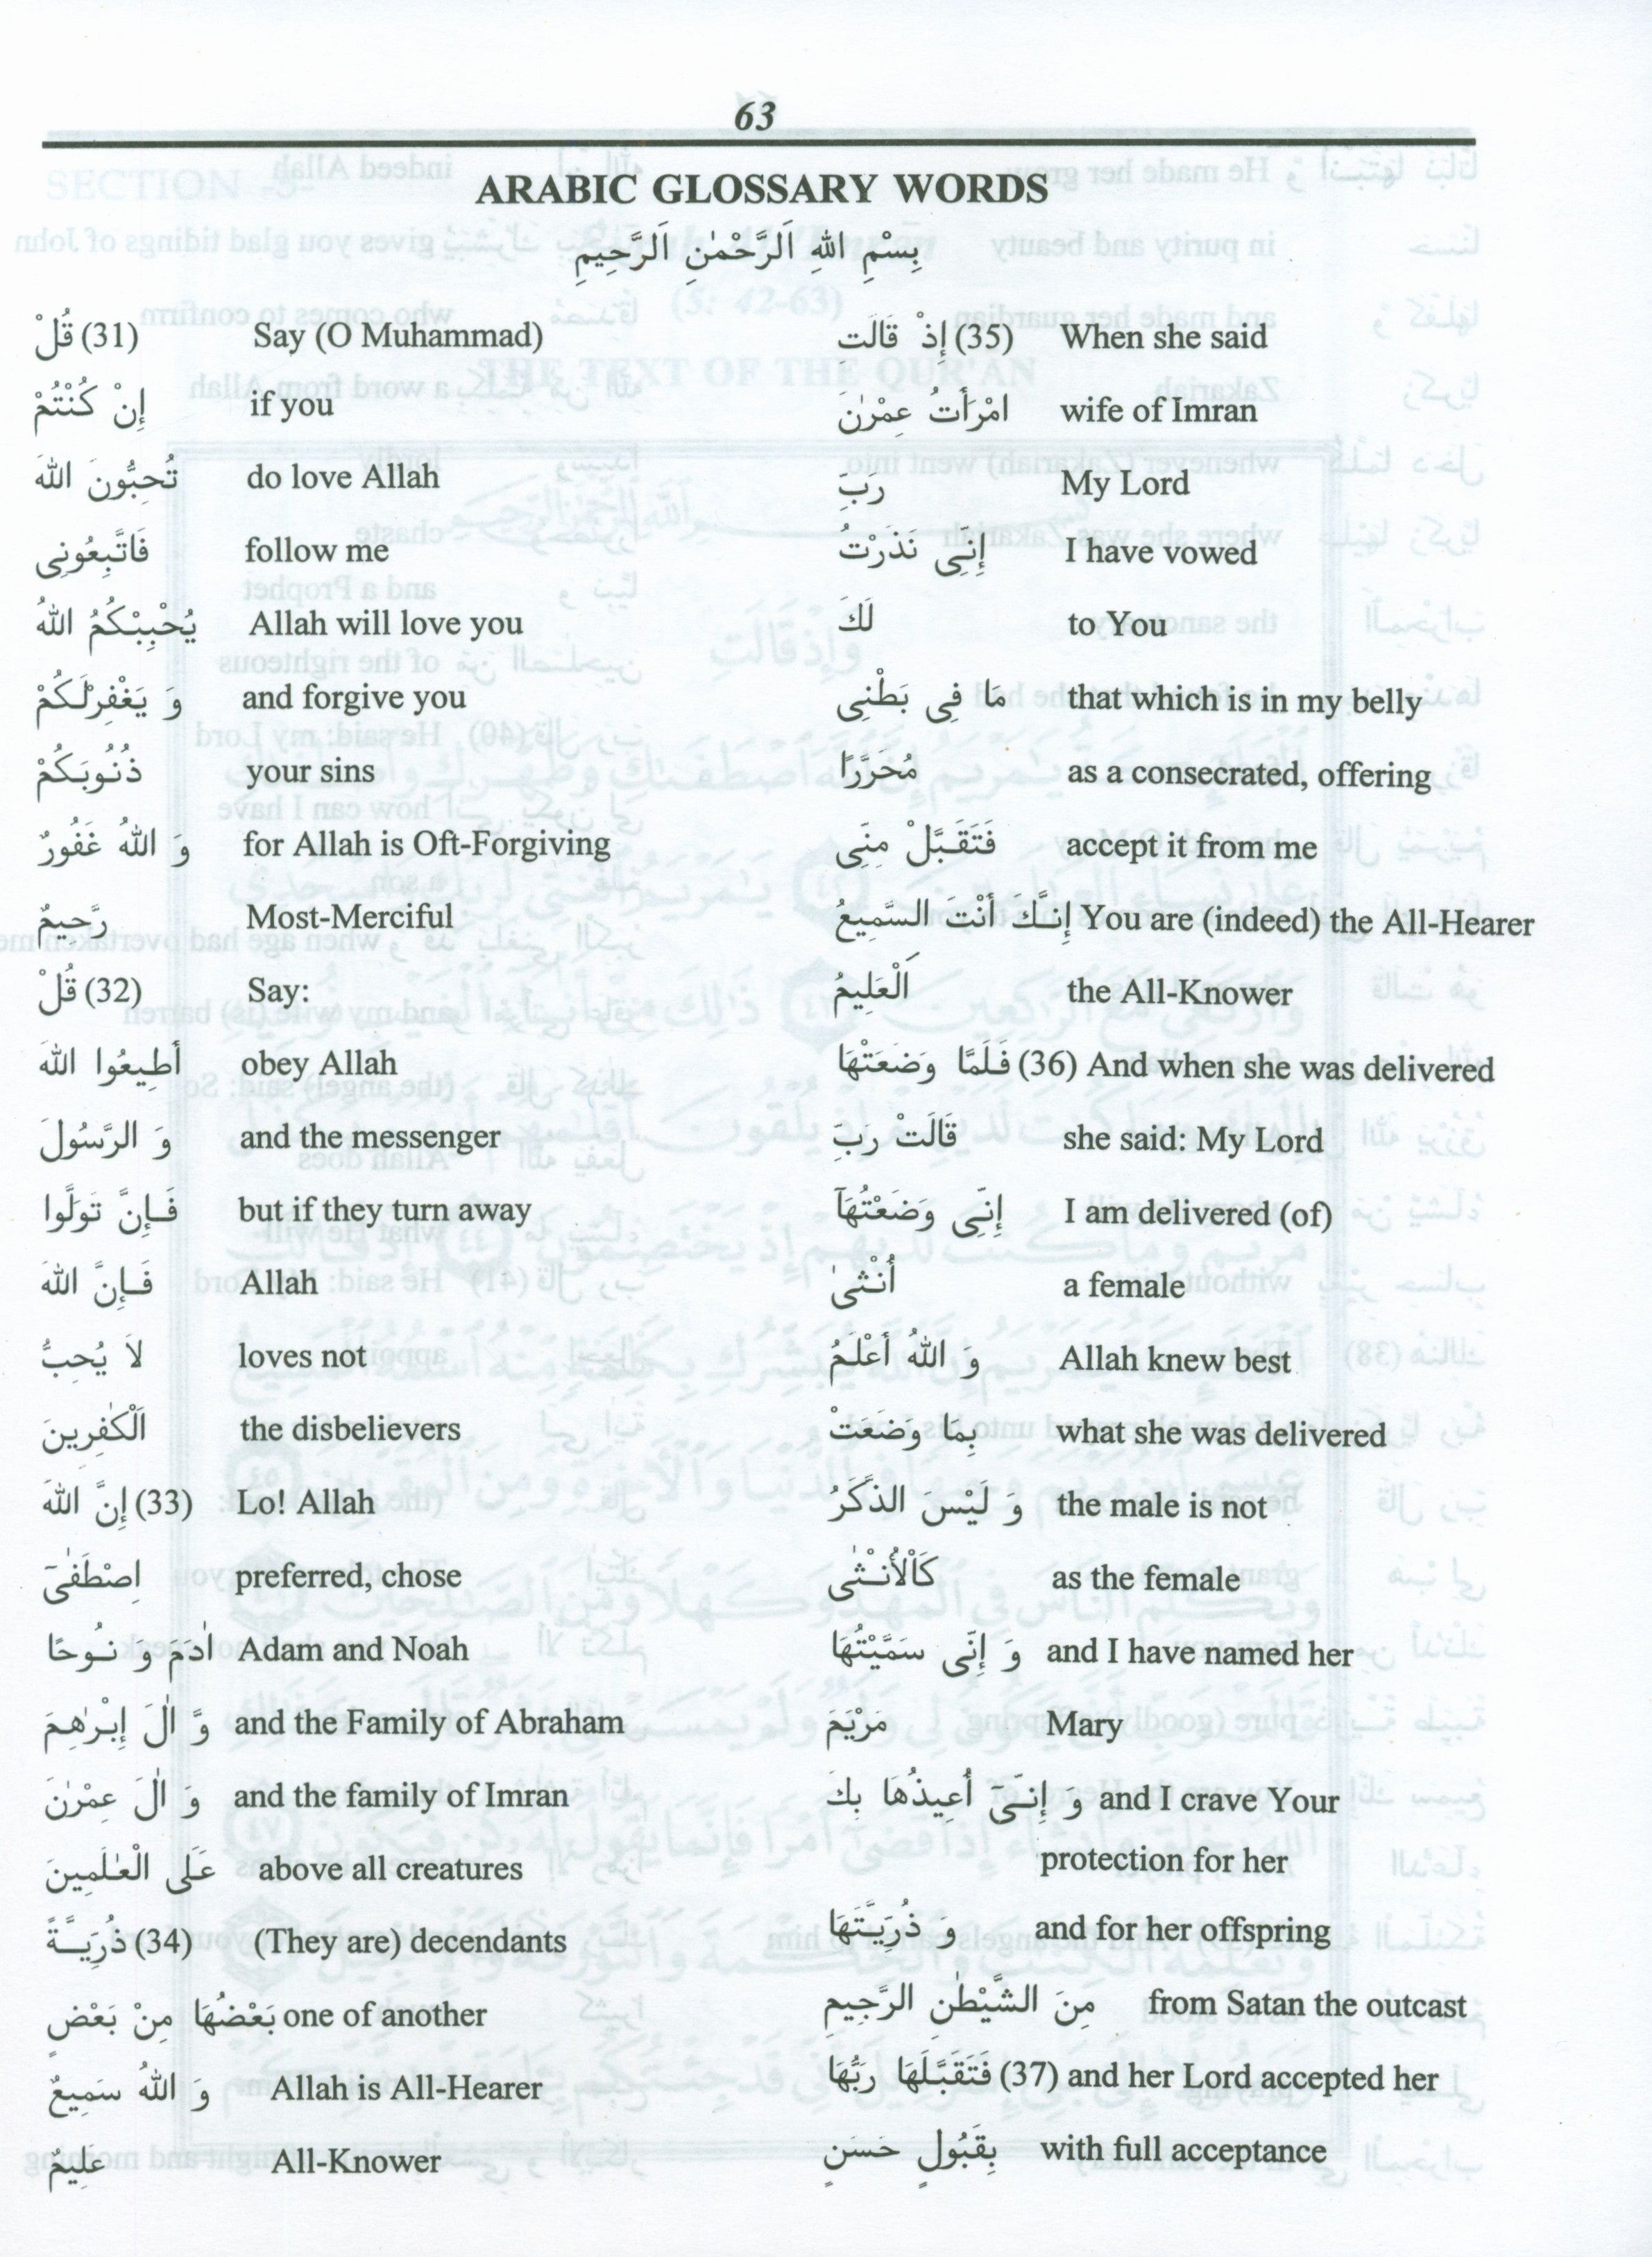 63
ARABIC GLOSSARY WORDS
بِسْمِ اللهِ اَلرَّحْمٰنِ اَلرَّحِيمِ
قُلْ (31) Say (O Muhammad)
إِنْ كُنْتُمْ if you
تُحِبُّونَ اللهَ do love Allah
فَاتَّبِعُونِى follow me
يُحْبِبْكُمُ اللهُ Allah will love you
وَ يَغْفِرْلَكُمْ and forgive you
ذُنُوبَكُمْ your sins
وَ اللهُ غَفُورٌ for Allah is Oft-Forgiving
رَّحِيمٌ Most-Merciful
قُلْ (32) Say:
أَطِيعُوا اللهَ obey Allah
وَ الرَّسُولَ and the messenger
فَـإِنَّ تَوَلَّوا but if they turn away
فَـإِنَّ اللهَ Allah
لاَ يُحِبُّ loves not
اَلْكٰفِرِينَ the disbelievers
إِنَّ اللهَ (33) Lo! Allah
اِصْطَفٰىٓ preferred, chose
اٰدَمَ وَ نُـوحًا Adam and Noah
وَّ اٰلَ إِبْـرٰهِـمَ and the Family of Abraham
وَ اٰلَ عِمْرٰنَ and the family of Imran
عَلَى الْعٰلَمِينَ above all creatures
ذُرِيَّـــةً (34) (They are) decendants
بَعْضُهَا مِنْ بَعْضٍ one of another
وَ اللهُ سَمِيعٌ Allah is All-Hearer
عَلِيمٌ All-Knower
إِذْ قَالَتِ (35) When she said
امْرَأَتُ عِمْرٰنَ wife of Imran
رَبِّ My Lord
إِنِّى نَذَرْتُ I have vowed
لَكَ to You
مَا فِى بَطْنِى that which is in my belly
مُحَرَّرًا as a consecrated, offering
فَتَقَبَّلْ مِنِّى accept it from me
إِنـَّكَ أَنْتَ السَّمِيعُ You are (indeed) the All-Hearer
اَلْعَلِيمُ the All-Knower
فَلَمَّا وَضَعَتْهَا (36) And when she was delivered
قَالَتْ رَبِّ she said: My Lord
إِنِّى وَضَعْتُهَآ I am delivered (of)
أُنْثٰى a female
وَ اللهُ أَعْلَمُ Allah knew best
بِمَا وَضَعَتْ what she was delivered
وَ لَيْسَ الذَّكَرُ the male is not
كَالْأُنْـثٰى as the female
وَ إِنِّى سَمَّيْتُهَا and I have named her
مَرْيَمَ Mary
وَ إِنِّـىٓ أُعِيذُهَا بِكَ and I crave Your
protection for her
وَ ذُرِيَّـتَهَا and for her offspring
مِنَ الشَّيْطٰنِ الرَّجِيمِ from Satan the outcast
فَتَقَبَّلَهَا رَبُّهَا (37) and her Lord accepted her
بِقَبُولٍ حَسَنٍ with full acceptance